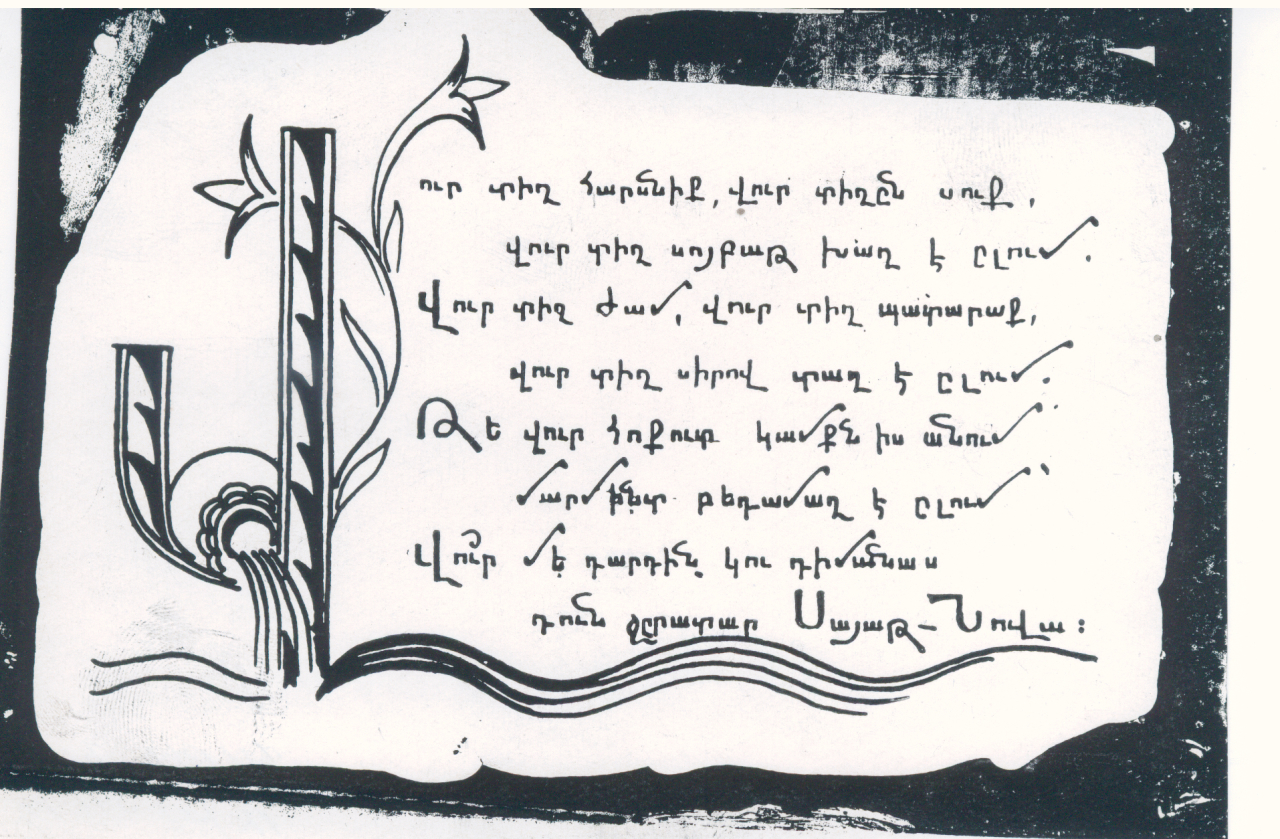 Վուր տիղ հարսնիք, վուր տիղըն սուք,
վուր տիղ սոյբաթ խաղ է ըլում.
Վուր տիղ ժամ, վուր տիղ պատարաք,
վուր տիղ սիրով տաղ է ըլում.
Թե վուր հոքուտ կամքն իս անում
մարմինտ բեդամաղ է ըլում
Վո՞ւր մե դարդին կու դիմանաս
դուն ջըրատար Սայաթ-Նովա: